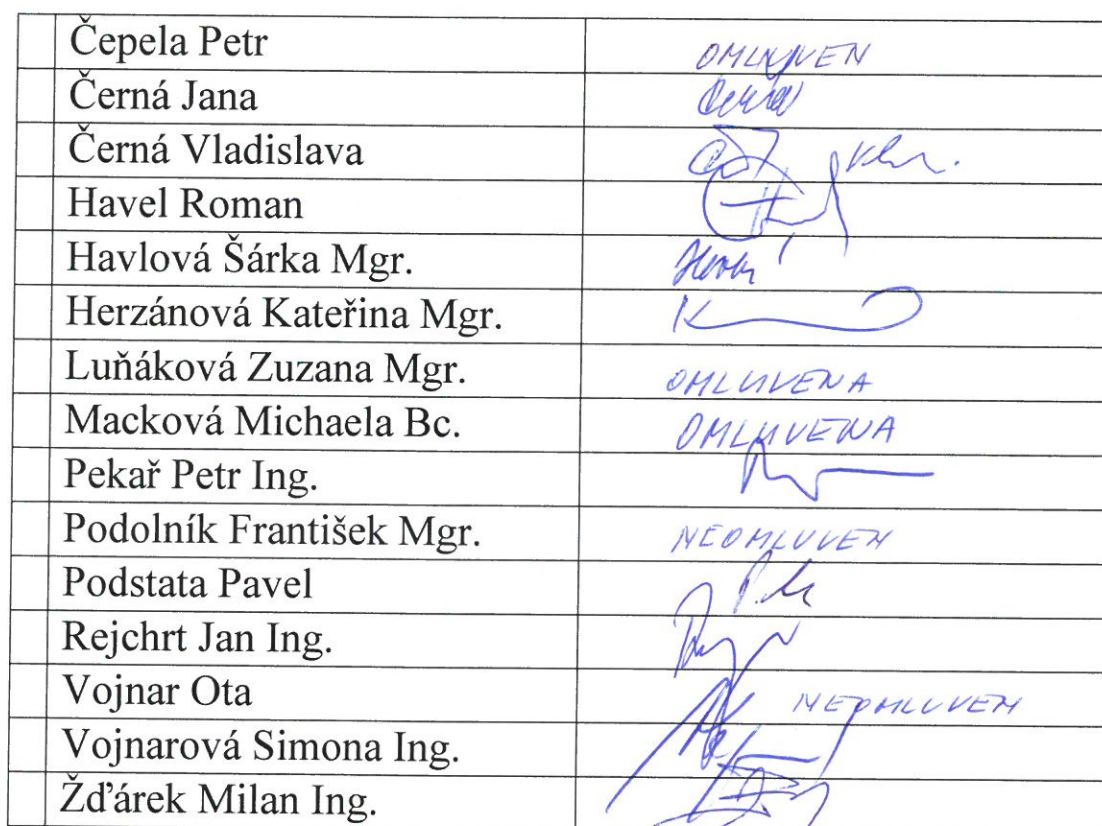 Čepela Petr OMLUVEN
Černá Jana
Černá Vladislava
Havel Roman
Havlová Šárka Mgr.
Herzánová Kateřina Mgr.
Luňáková Zuzana Mgr. OMLUVENA
Macková Michaela Bc. OMLUVENA
Pekař Petr Ing.
Podolník František Mgr. NEOMLUVEN
Podstata Pavel
Rejchrt Jan Ing.
Vojnar Ota NEOMLUVEN
Vojnarová Simona Ing.
Žďárek Milan Ing.